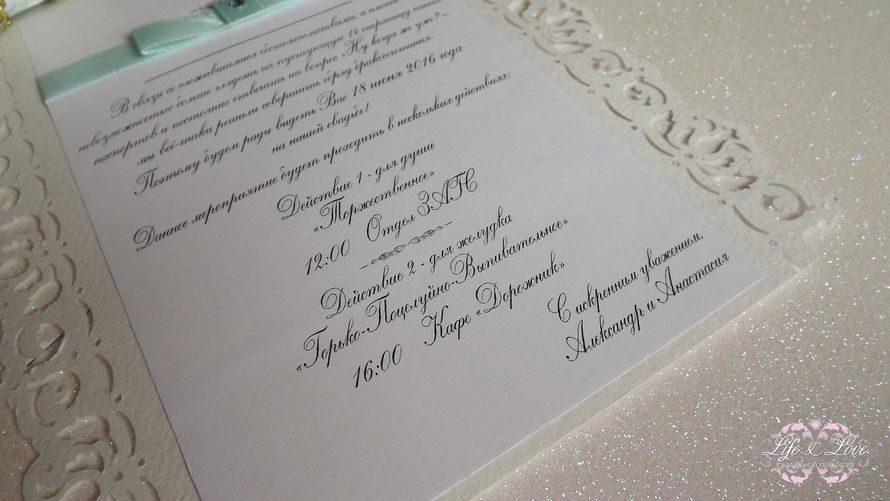 В связи со сложившимися обстоятельствами, а именно
невозможностью больше глядеть на пустующую 14 страницу наших
паспортов и постоянно отвечать на вопрос «Ну когда же уже?»,
мы всё-таки решили совершить обряд бракосочетания.
Поэтому будем рады видеть Вас 18 июня 2016 года
на нашей свадьбе!
Данное мероприятие будет проходить в нескольких действиях:
Действие 1 - для души
«Торжественное»
12:00 Отдел ЗАГС
Действие 2 - для желудка
«Горько-Поцелуйно-Выпивательное»
16:00 Кафе «Дорожник»
С искренним уважением,
Александр и Анастасия
Life & Love
свадебное агентство